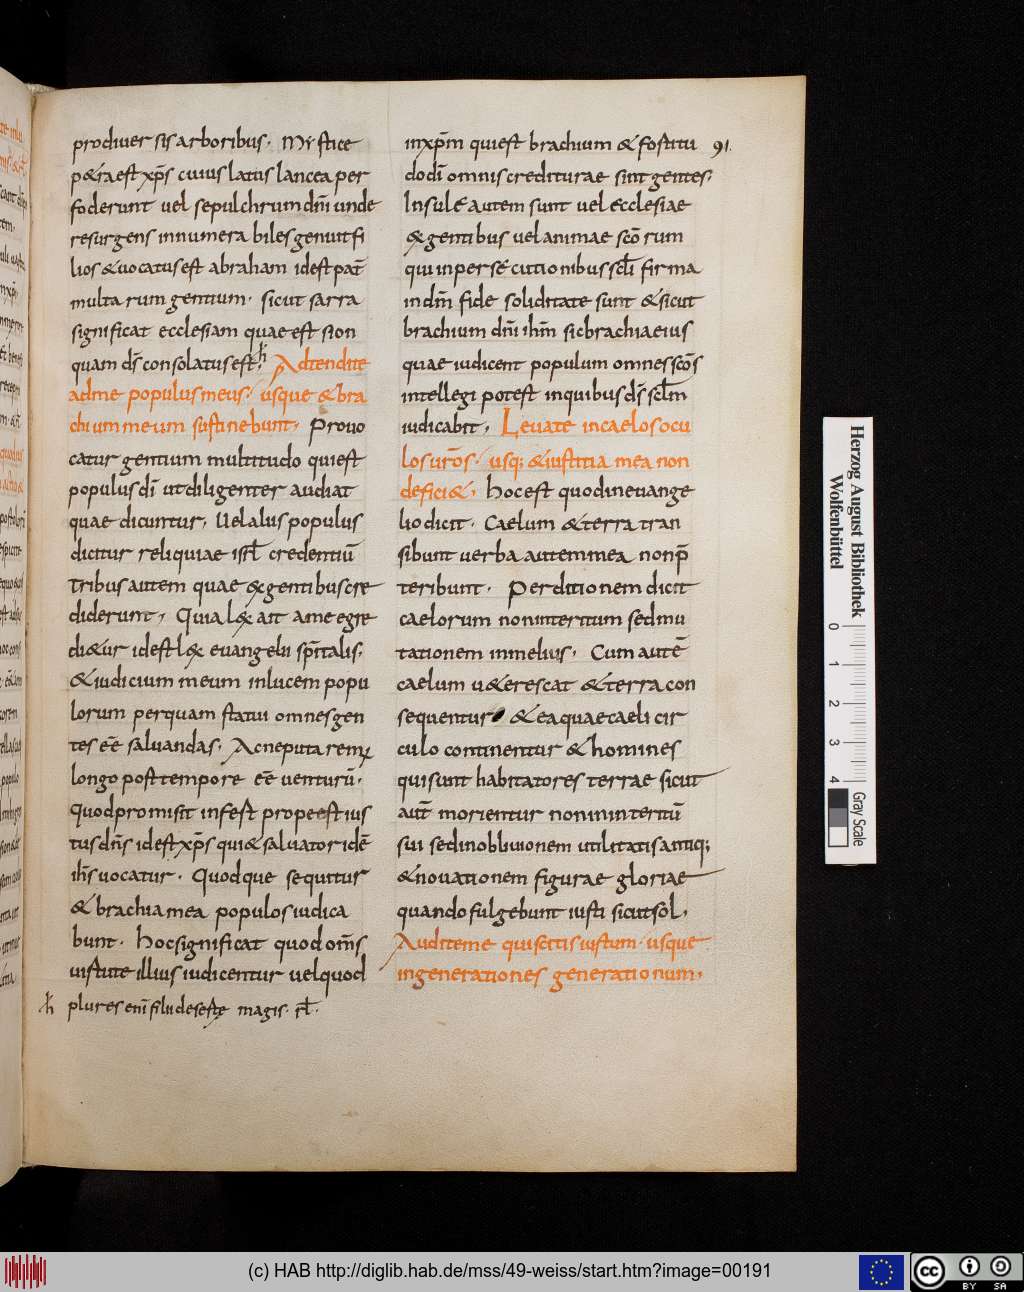 prodiuersis arboribus. Mystice
p&ra est xp̄s cuius latus lancea per
foderunt uel sepulchrum dn̄i unde
resurgens innumerabiles genuit fi
lios & uocatus est abraham id est pat̄
multarum gentium. sicut sarra
significat ecclesiam quae est sion
quam dn̄s consolatus est; h̄ Adtendite
adme populus meus. usque & bra
chium meum sustinebunt. Prouo
catur gentium multitudo qui est
populus dī ut diligenter audiat
quae dicuntur. Uel alus populus
dicitur reliquiae isrl̄ credentiū
tribus autem quae ex gentibus cre
diderunt. Quia lex ait a me egre
di&ur id est lex euangelii sp̄italis.
& iudicium meum in lucem popu
lorum per quam statui omnes gen
tes eē saluandas. Ac ne putarem
longo post tempore eē uenturū.
Quod promisit infest prope est ius
tus dn̄s id est xp̄s qui & saluator idē
ih̄s uocatur. Quodque sequitur
& brachia mea populos iudica
bunt. hoc significat quod om̄s
uirtute illius iudicentur uel quod
h̄ plures enī filii desertę magis. rl̄.
in xp̄m qui est brachium & fostitu 91.
do dī omnis crediturae sint gentes.
Insulę autem sunt uel ecclesiae
& gentibus uel animae scōrum
qui in persecutionibus scl̄i firma
in dm̄ fide soliditate sunt & sicut
brachium dn̄i ihm̄ sic brachia eius
quae iudicent populum omnes scōs
intellegi potest in quibus dn̄s scl̄m
iudicabit. Leuate in caelos ocu
los urōs. usq; & iustitia mea non
defici&. hoc est quod in euange
lio dicit. Caelum & terra tran
sibunt uerba autem mea non p̄
teribunt. Perditionem dicit
caelorum non interitum sed mu
tationem in melius. Cum autē
caelum u&erescat & terra con
sequentur & ea quae caeli cir
culo continentur & homines
qui sunt habitatores terrae sicut
aut̄ morientur non in interitū
sui sed in obliuionem utilitatis antiq;
& nouationem figurae gloriae
quando fulgebunt iusti sicut sol.
Audite me qui scitis iustum. usque
in generationes generationum.
Herzog August Bibliothek
Wolfenbüttel
0 1 2 3 4
Gray Scale
(c) HAB http://diglib.hab.de/mss/49-weiss/start.htm?image=00191
cc BY SA